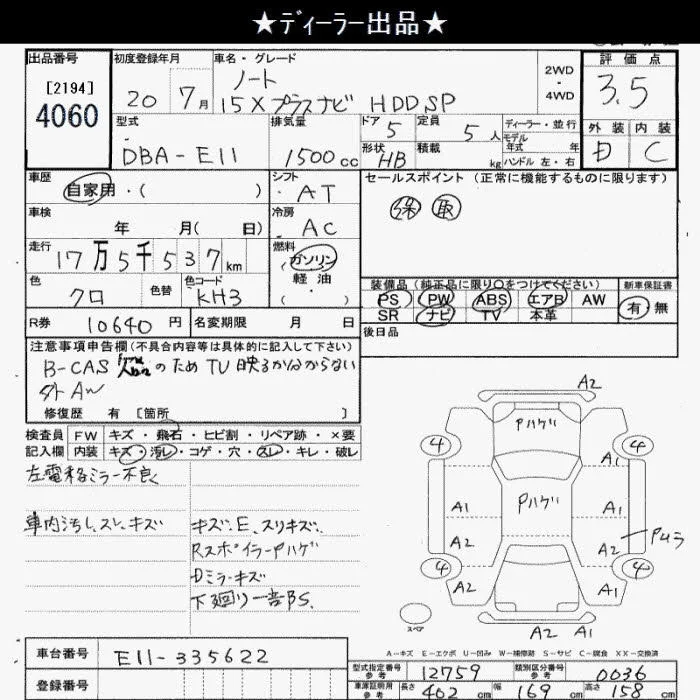 ★ディーラー出品★
出品番号 初度登録年月 車名・グレード 2WD・4WD 評価点
[2194]
4060
20 7月
ノート
15Xプラスナビ HDD SP
3.5
型式 排気量 ドア 定員 ディーラー・並行 外装 内装
DBA-E11 1500cc 5 5人
モデル年式 年
形状 積載 kg ハンドル 左・右
HB
D C
車歴 シフト セールスポイント (正常に機能するものに限ります)
自家用・( ) AT
保 取
車検 冷房
年 月( 日) AC
走行 燃料
17万5千537km ガソリン
軽油
( ・ )
色 色替 色コード
クロ KH3
装備品(純正品に限り○をつけてください) 新車保証書
PS PW ABS エアB AW 有・無
SR ナビ TV 本革
R券 10640円 名変期限 月 日 後日品
注意事項申告欄(不具合内容等は具体的に記入して下さい)
B-CAS のため TV 映るかわからない
外AW
修復歴 有 [箇所 ]
検査員 FW キズ・飛石・ヒビ割・リペア跡・×要
記入欄 内装 キズ・汚レ・コゲ・穴・スレ・キレ・破レ
左電格ミラー不良
車内汚レ、スレ、キズ
キズ、E、スリキズ、
RスポイラーPハゲ
Dミラーキズ
下廻り一部S.
A2
Pハゲ
4 4
A1
Pハゲ
A1 A1
A2 A2 Pムラ
4 4
A2 A2
スペア
A2 A1
A-キズ E-エクボ U-凹み W-補修跡 S-サビ C-腐食 XX-交換済
車台番号 E11-335622
型式指定番号 参考 12759 類別区分番号 参考 0036
登録番号
車庫証明用 参考 長さ 402cm 幅 169cm 高さ 158cm